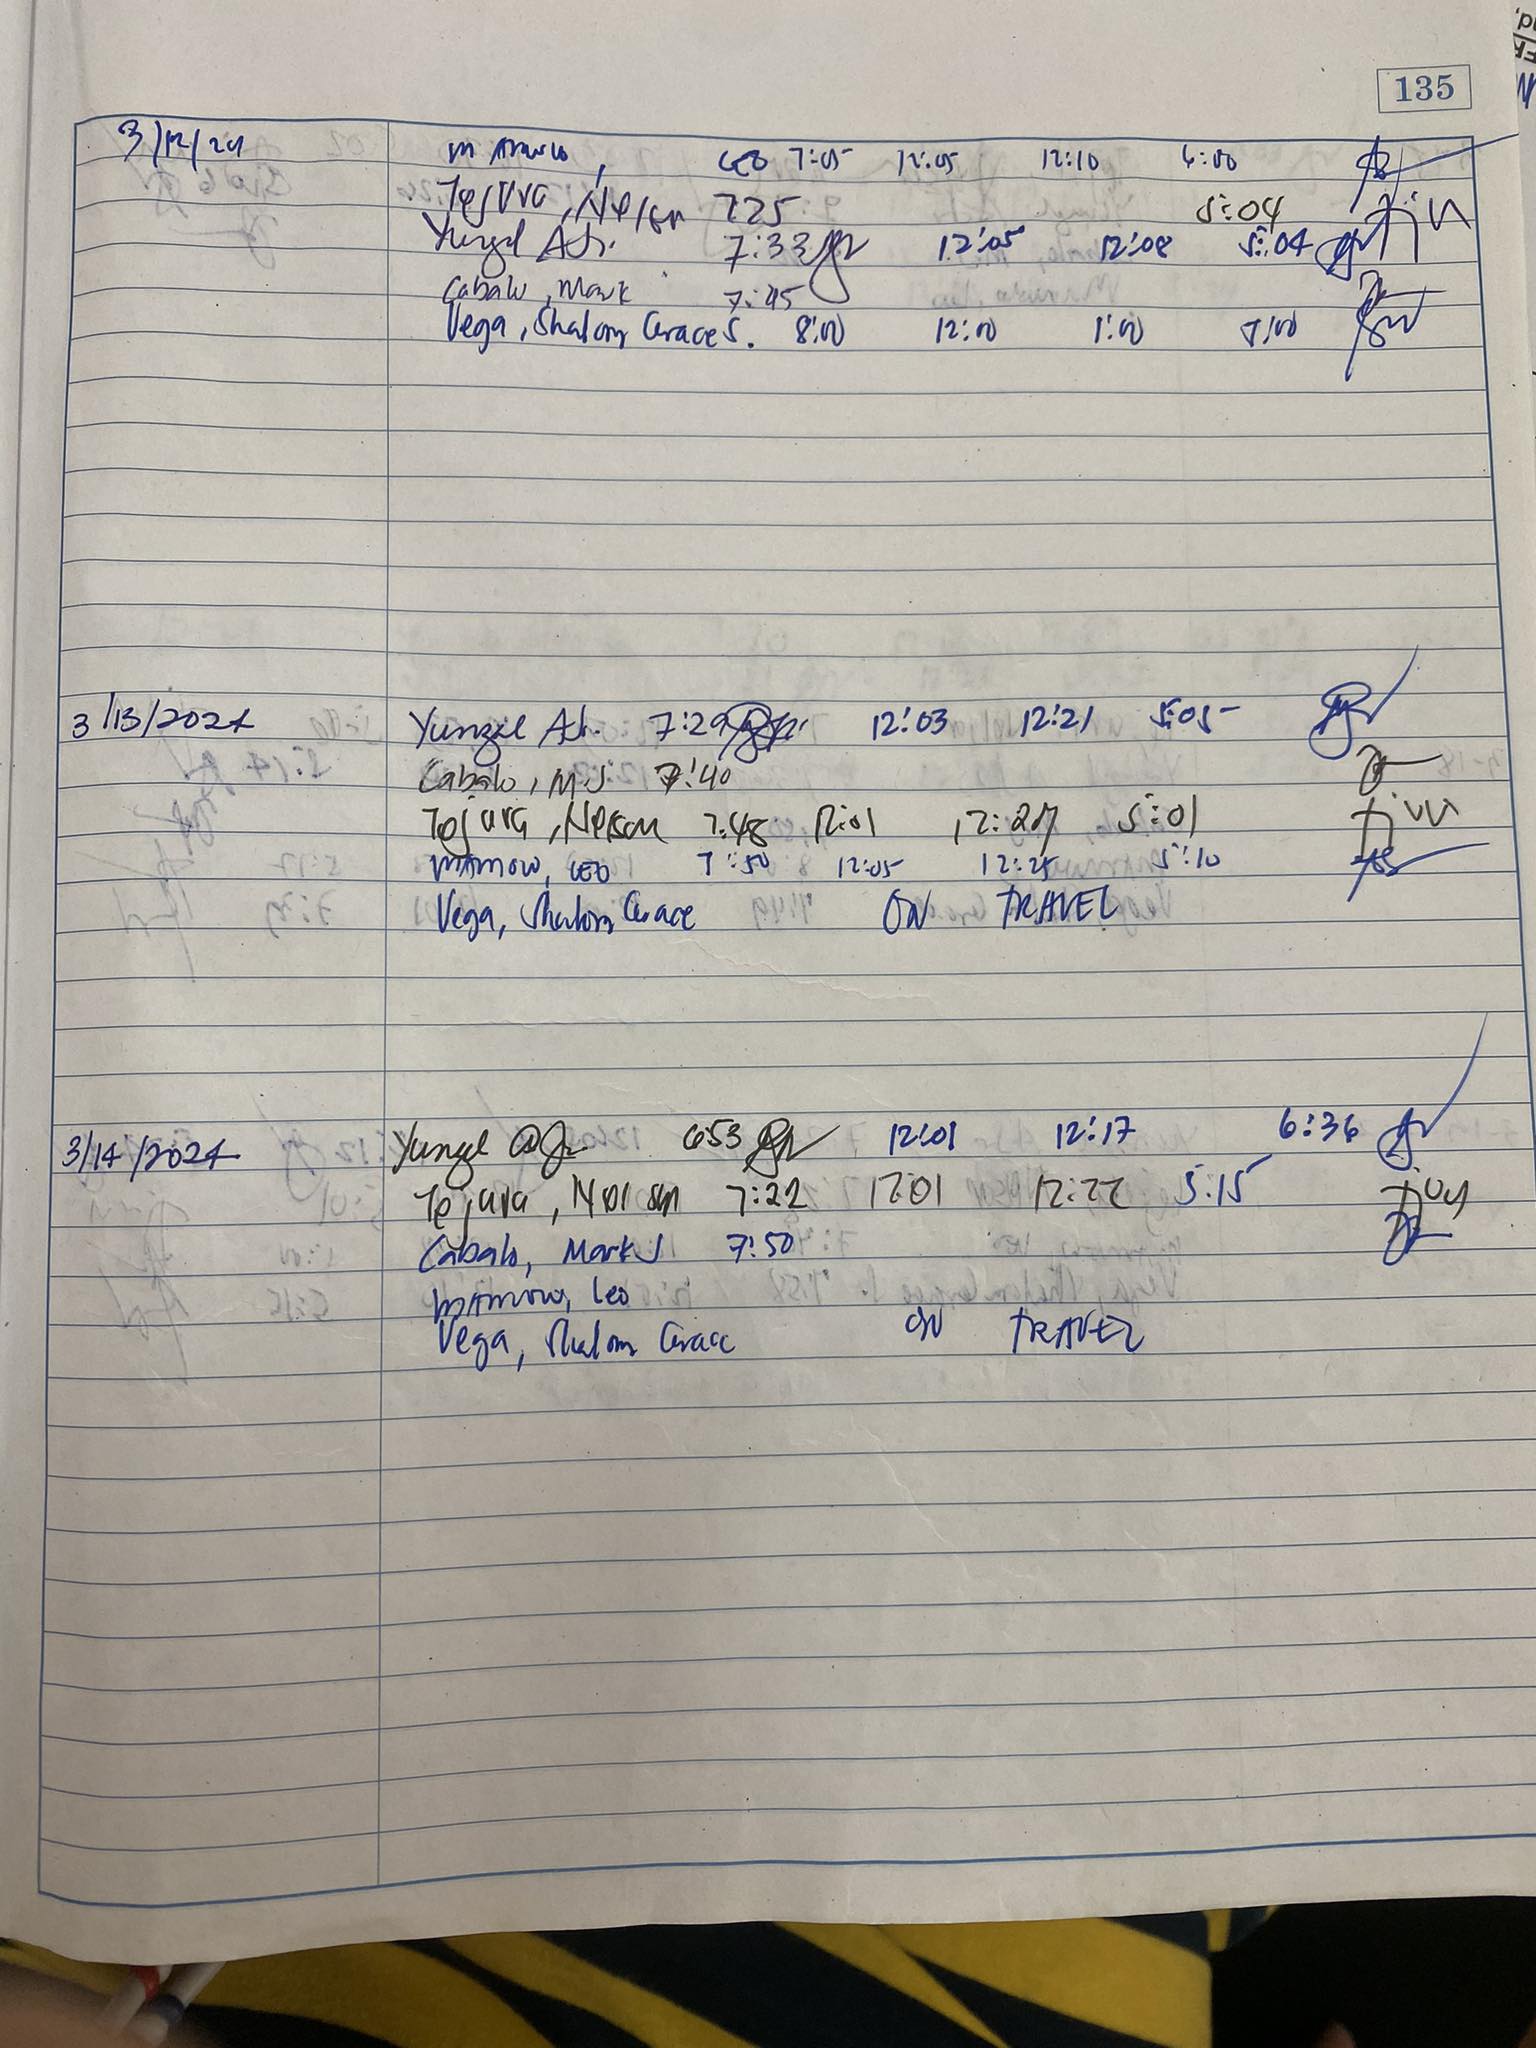 135
3/12/24 Mamow, LEO 7:05 12:05 12:10 6:00
Tejura, Nelson 725 5:04
Yungel A Jr. 7:33 12:05 12:08 5:04
Cabalo, Mark 7:45
Vega, Shalom Grace S. 8:00 12:00 1:00 7:00
3/13/2024 Yungel A Jr. 7:29 12:03 12:21 5:05
Cabalo, M.J 7:40
Tejura, Nelson 7:48 12:01 12:27 5:01
Mamow, LEO 7:50 12:05 12:25 5:10
Vega, Shalom Grace ON TRAVEL
3/14/2024 Yungel A Jr. 653 12:01 12:17 6:36
Tejura, Nelson 7:22 12:01 12:22 5:15
Cabalo, Mark J 7:50
Mamow, Leo
Vega, Shalom Grace ON TRAVEL